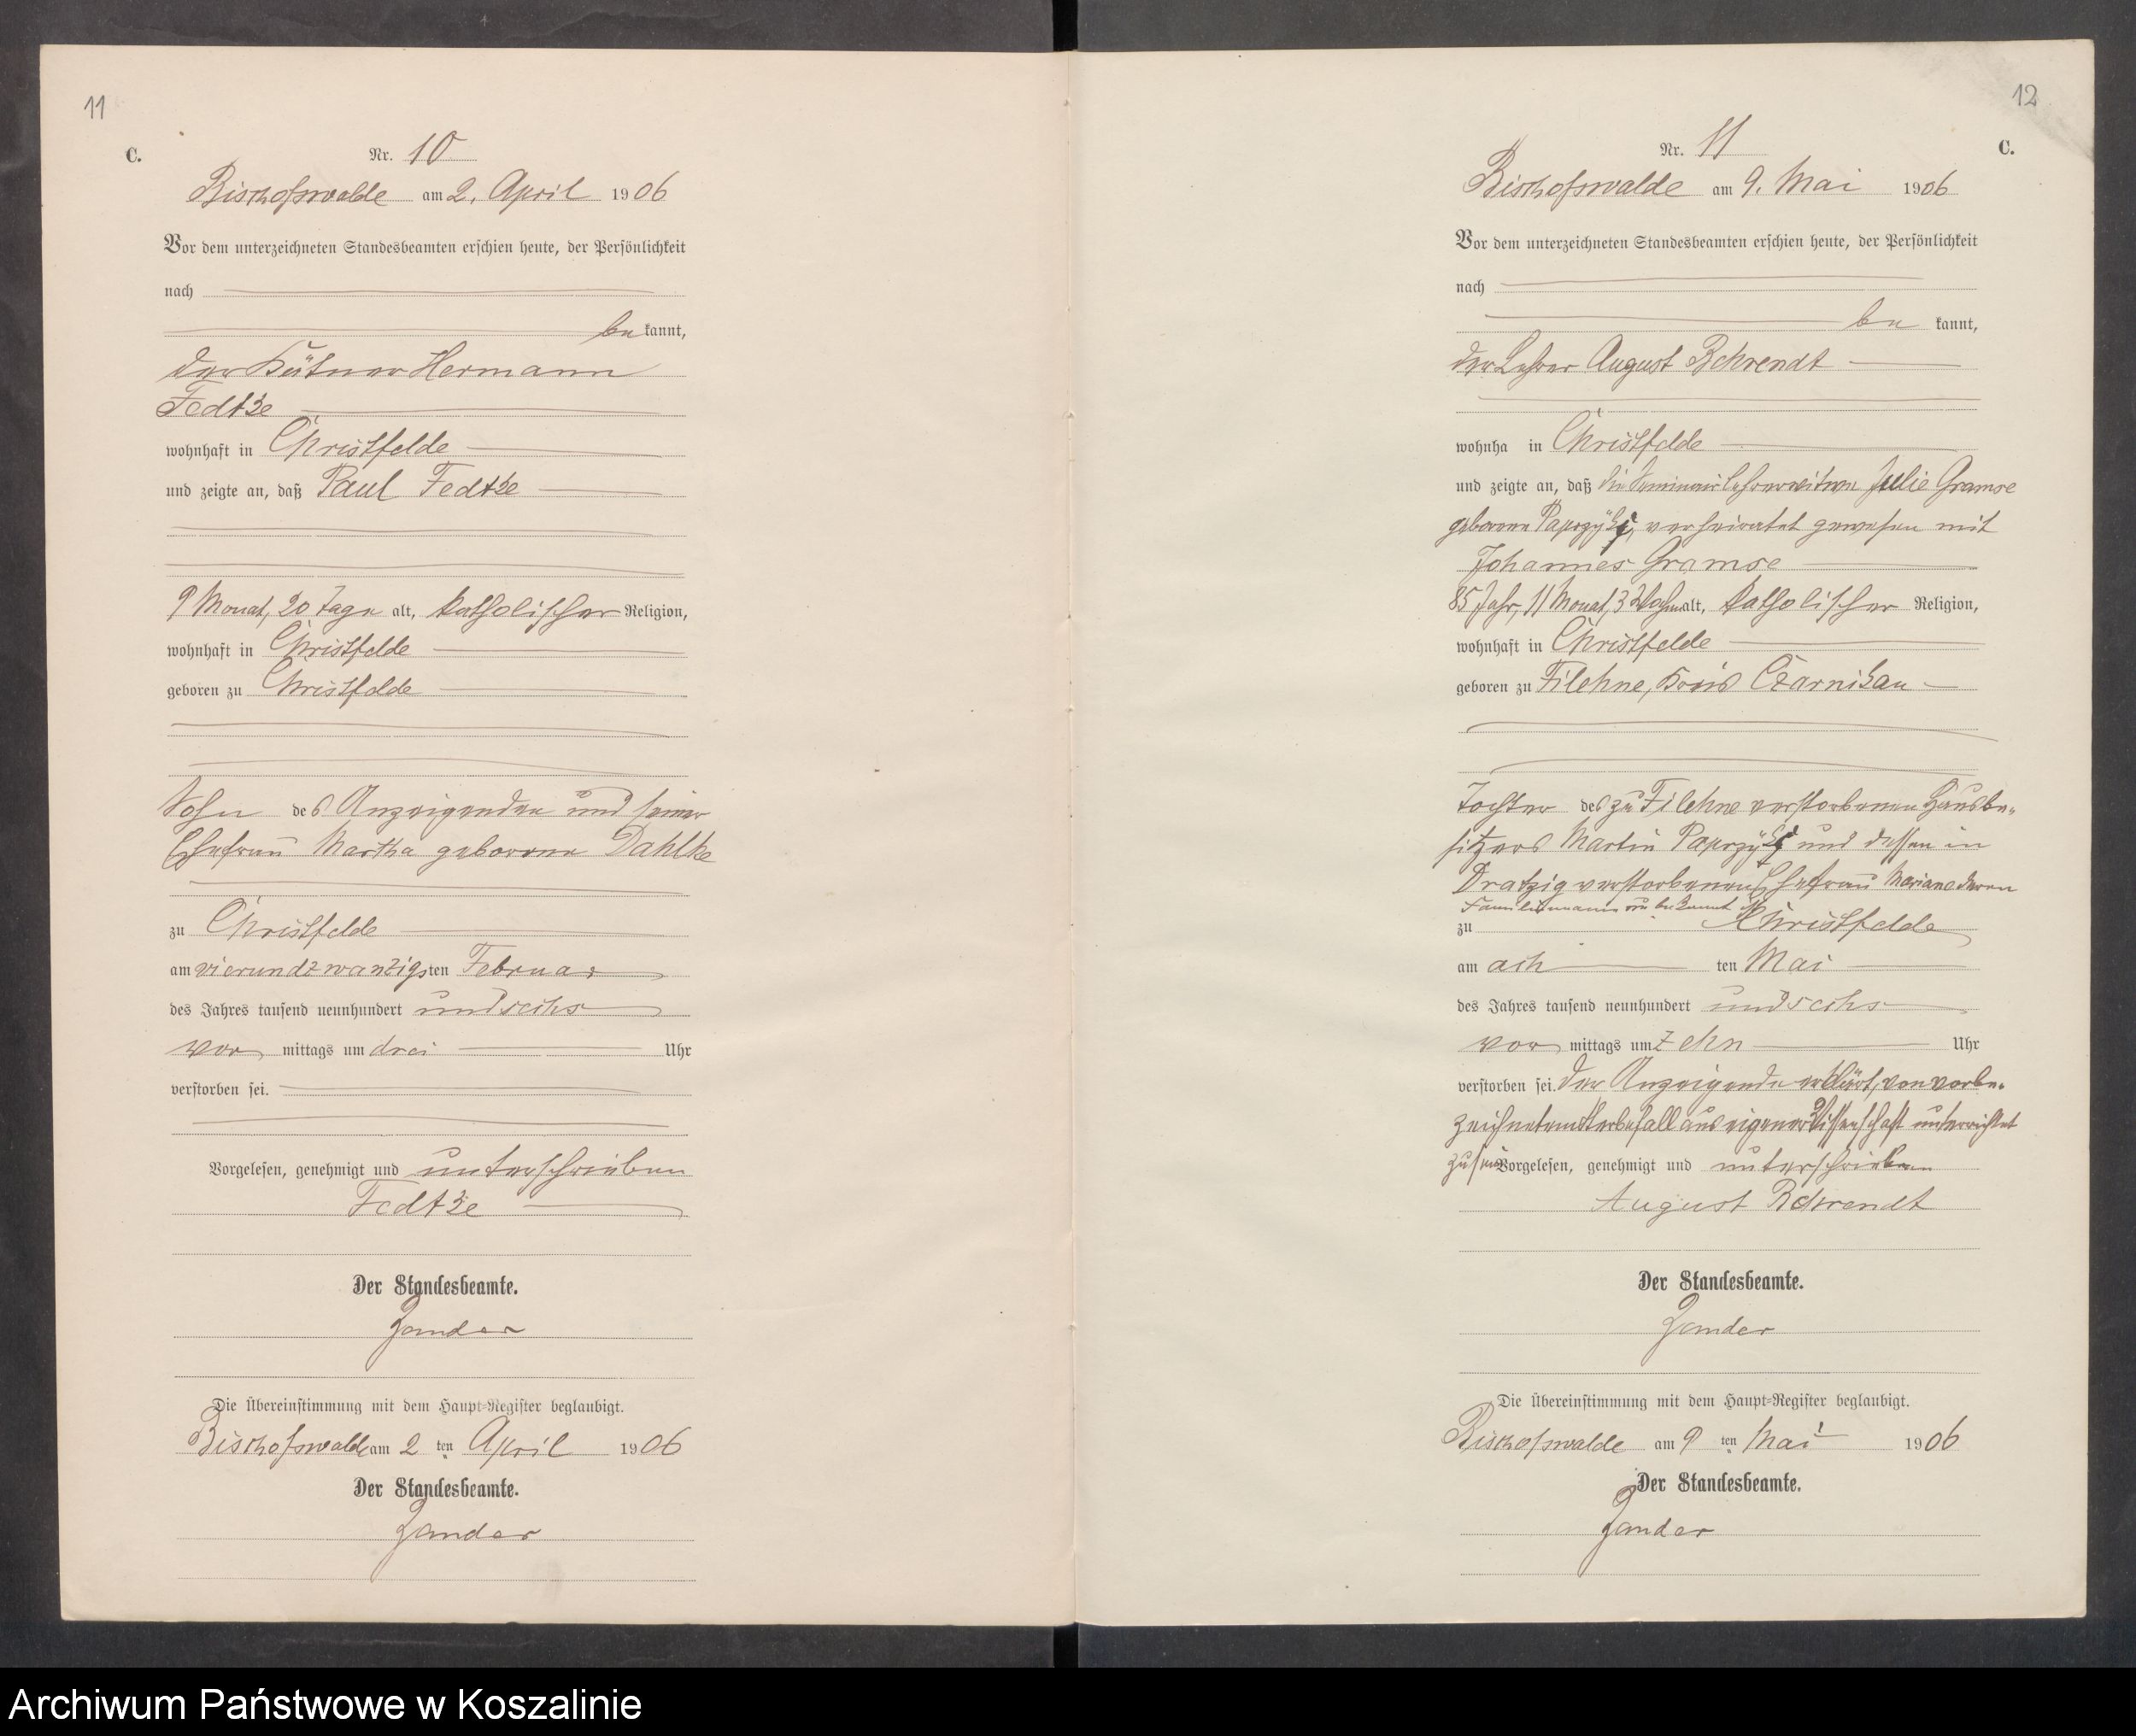 11
C.
Nr. 10
Bischofswalde am 2. April 1906
Vor dem unterzeichneten Standesbeamten erschien heute, der Persönlichkeit
nach
be kannt,
der Kätner Hermann
Fedtke
wohnhaft in Christfelde
und zeigte an, daß Paul Fedtke
9 Monat, 20 Tage alt, katholischer Religion,
wohnhaft in Christfelde
geboren zu Christfelde
Sohn des Anzeigenden und seiner
Ehefrau Martha geborene Dahlke
zu Christfelde
am vierundzwanzigsten Februar
des Jahres tausend neunhundert undsechs
vor mittags um drei Uhr
verstorben sei.
Vorgelesen, genehmigt und unterschrieben
Fedtke
Der Standesbeamte.
Zander
Die Übereinstimmung mit dem Haupt-Register beglaubigt.
Bischofswalde am 2 ten April 1906
Der Standesbeamte.
Zander
12
Nr. 11
C.
Bischofswalde am 9. Mai 1906
Vor dem unterzeichneten Standesbeamten erschien heute, der Persönlichkeit
nach
be kannt,
der Lehrer August Behrendt
wohnha in Christfelde
und zeigte an, daß die Seminarlehrerwitwe Julie Gramse
geborene verheiratet gewesen mit
Johannes Gramse
85 Jahr, 11 Monat, 3 Wochen alt, katholischer Religion,
wohnhaft in Christfelde
geboren zu Filehne, Kreis Czarnikau
Tochter des zu Filehne verstorbenen Hausbe-
sitzers Martin und dessen in
Dratzig verstorbenen Ehefrau Mariane deren
Familienname unbekannt ist
zu Christfelde
am ach ten Mai
des Jahres tausend neunhundert undsechs
vor mittags um zehn Uhr
verstorben sei. Der Anzeigende erklärt, von vorbe-
zeichnetem Sterbefall aus eigener Wissenschaft unterrichtet
zu sein Vorgelesen, genehmigt und unterschrieben
August Behrendt
Der Standesbeamte.
Zander
Die Übereinstimmung mit dem Haupt-Register beglaubigt.
Bischofswalde am 9 ten Mai 1906
Der Standesbeamte.
Zander
Archiwum Państwowe w Koszalinie